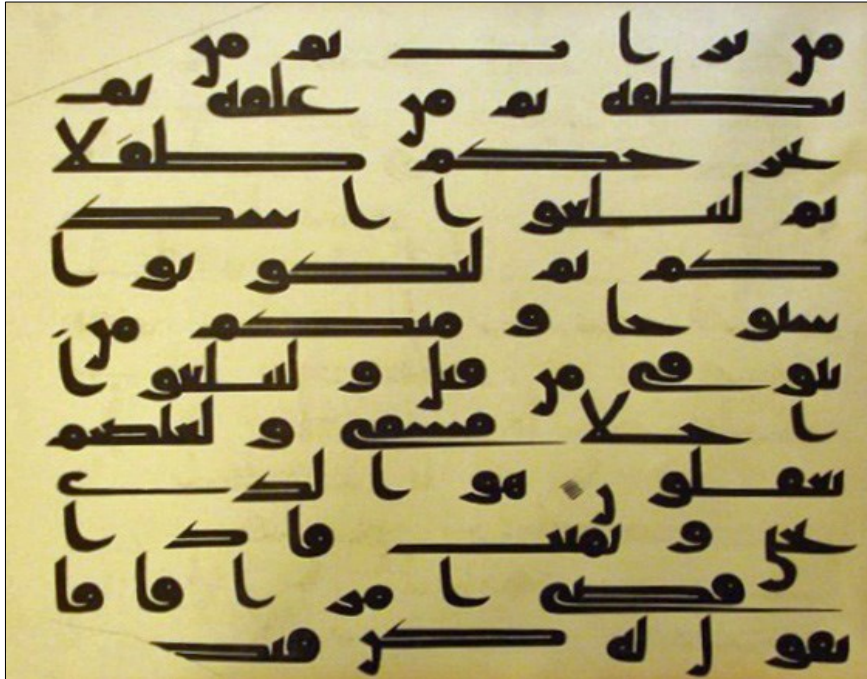 من تراب ثم من
نطفة ثم من علقة ثم
يخرجكم طفلا
ثم لتبلغوا ا شد
كم ثم لتكونوا
شيوخا و منكم من
يتوفى من قبل و لتبلغوا
ا جلا مسمى و لعلكم
تعقلون هو الذى
يحى و يميت فاذا
قضى امرا فا
يقول له كن فيكو